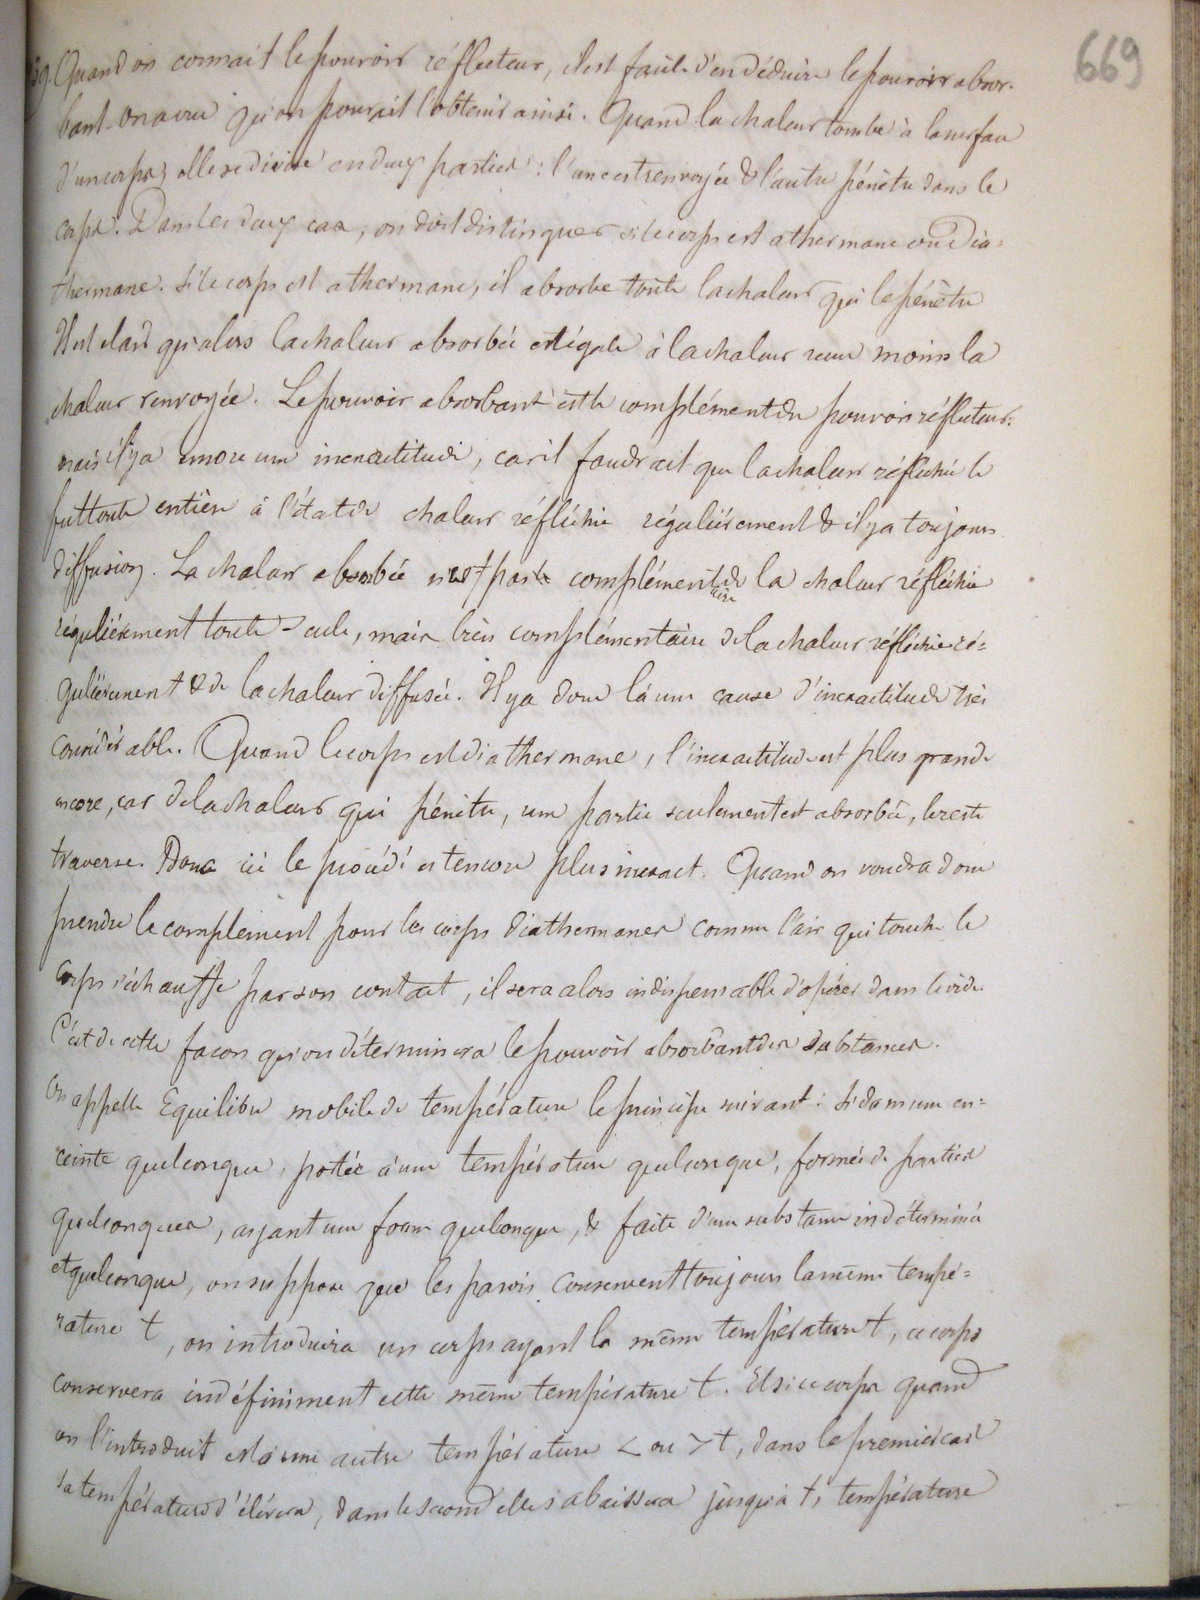 669
59. Quand on connait le pouvoir réflecteur, il est facile d'en déduire le pouvoir absor-
bant. On a vu qu'on pouvait l'obtenir ainsi. Quand la chaleur tombe à la surface
d'un corps, elle se divise en deux parties : l'une est renvoyée & l'autre pénètre dans le
corps. Dans les deux cas, on doit distinguer si le corps est athermane ou dia-
thermane. Si le corps est athermane, il absorbe toute la chaleur qui le pénètre
Il est clair qu'alors la chaleur absorbée est égale à la chaleur reçue moins la
chaleur renvoyée. Le pouvoir absorbant est le complément du pouvoir réflecteur.
mais il y a encore une inexactitude, car il faudrait que la chaleur réfléchie le
fut toute entière à l'état de chaleur réfléchie régulièrement & il y a toujours
diffusion. La chaleur absorbée n'est pas complémentaire de la chaleur réfléchie
régulièrement toute seule, mais bien complémentaire de la chaleur réfléchie ré-
gulièrement & de la chaleur diffusée. Il y a donc là une cause d'inexactitude très
considérable. Quand le corps est diathermane, l'inexactitude est plus grande
encore, car de la chaleur qui pénètre, une partie seulement est absorbée, le reste
traverse. Donc ici le procédé est encore plus inexact. Quand on voudra donc
prendre le complément pour les corps diathermanes comme l'air qui touche le
corps s'échauffe par son contact, il sera alors indispensable d'opérer dans le vide.
C'est de cette façon qu'on déterminera le pouvoir absorbant des substances.
On appelle Equilibre mobile de température le principe suivant : Si dans une en-
ceinte quelconque, portée à une température quelconque, formée de parties
quelconques, ayant une forme quelconque, & faite d'une substance indéterminée
et quelconque, on suppose que les parois conservent toujours la même tempé-
rature t, on introduira un corps ayant la même température t, ce corps
conservera indéfiniment cette même température t. Et si ce corps quand
on l'introduit est à une autre température < ou > t, dans le premier cas
sa température s'élèvera, dans le second elle s'abaissera jusqu'à t, température